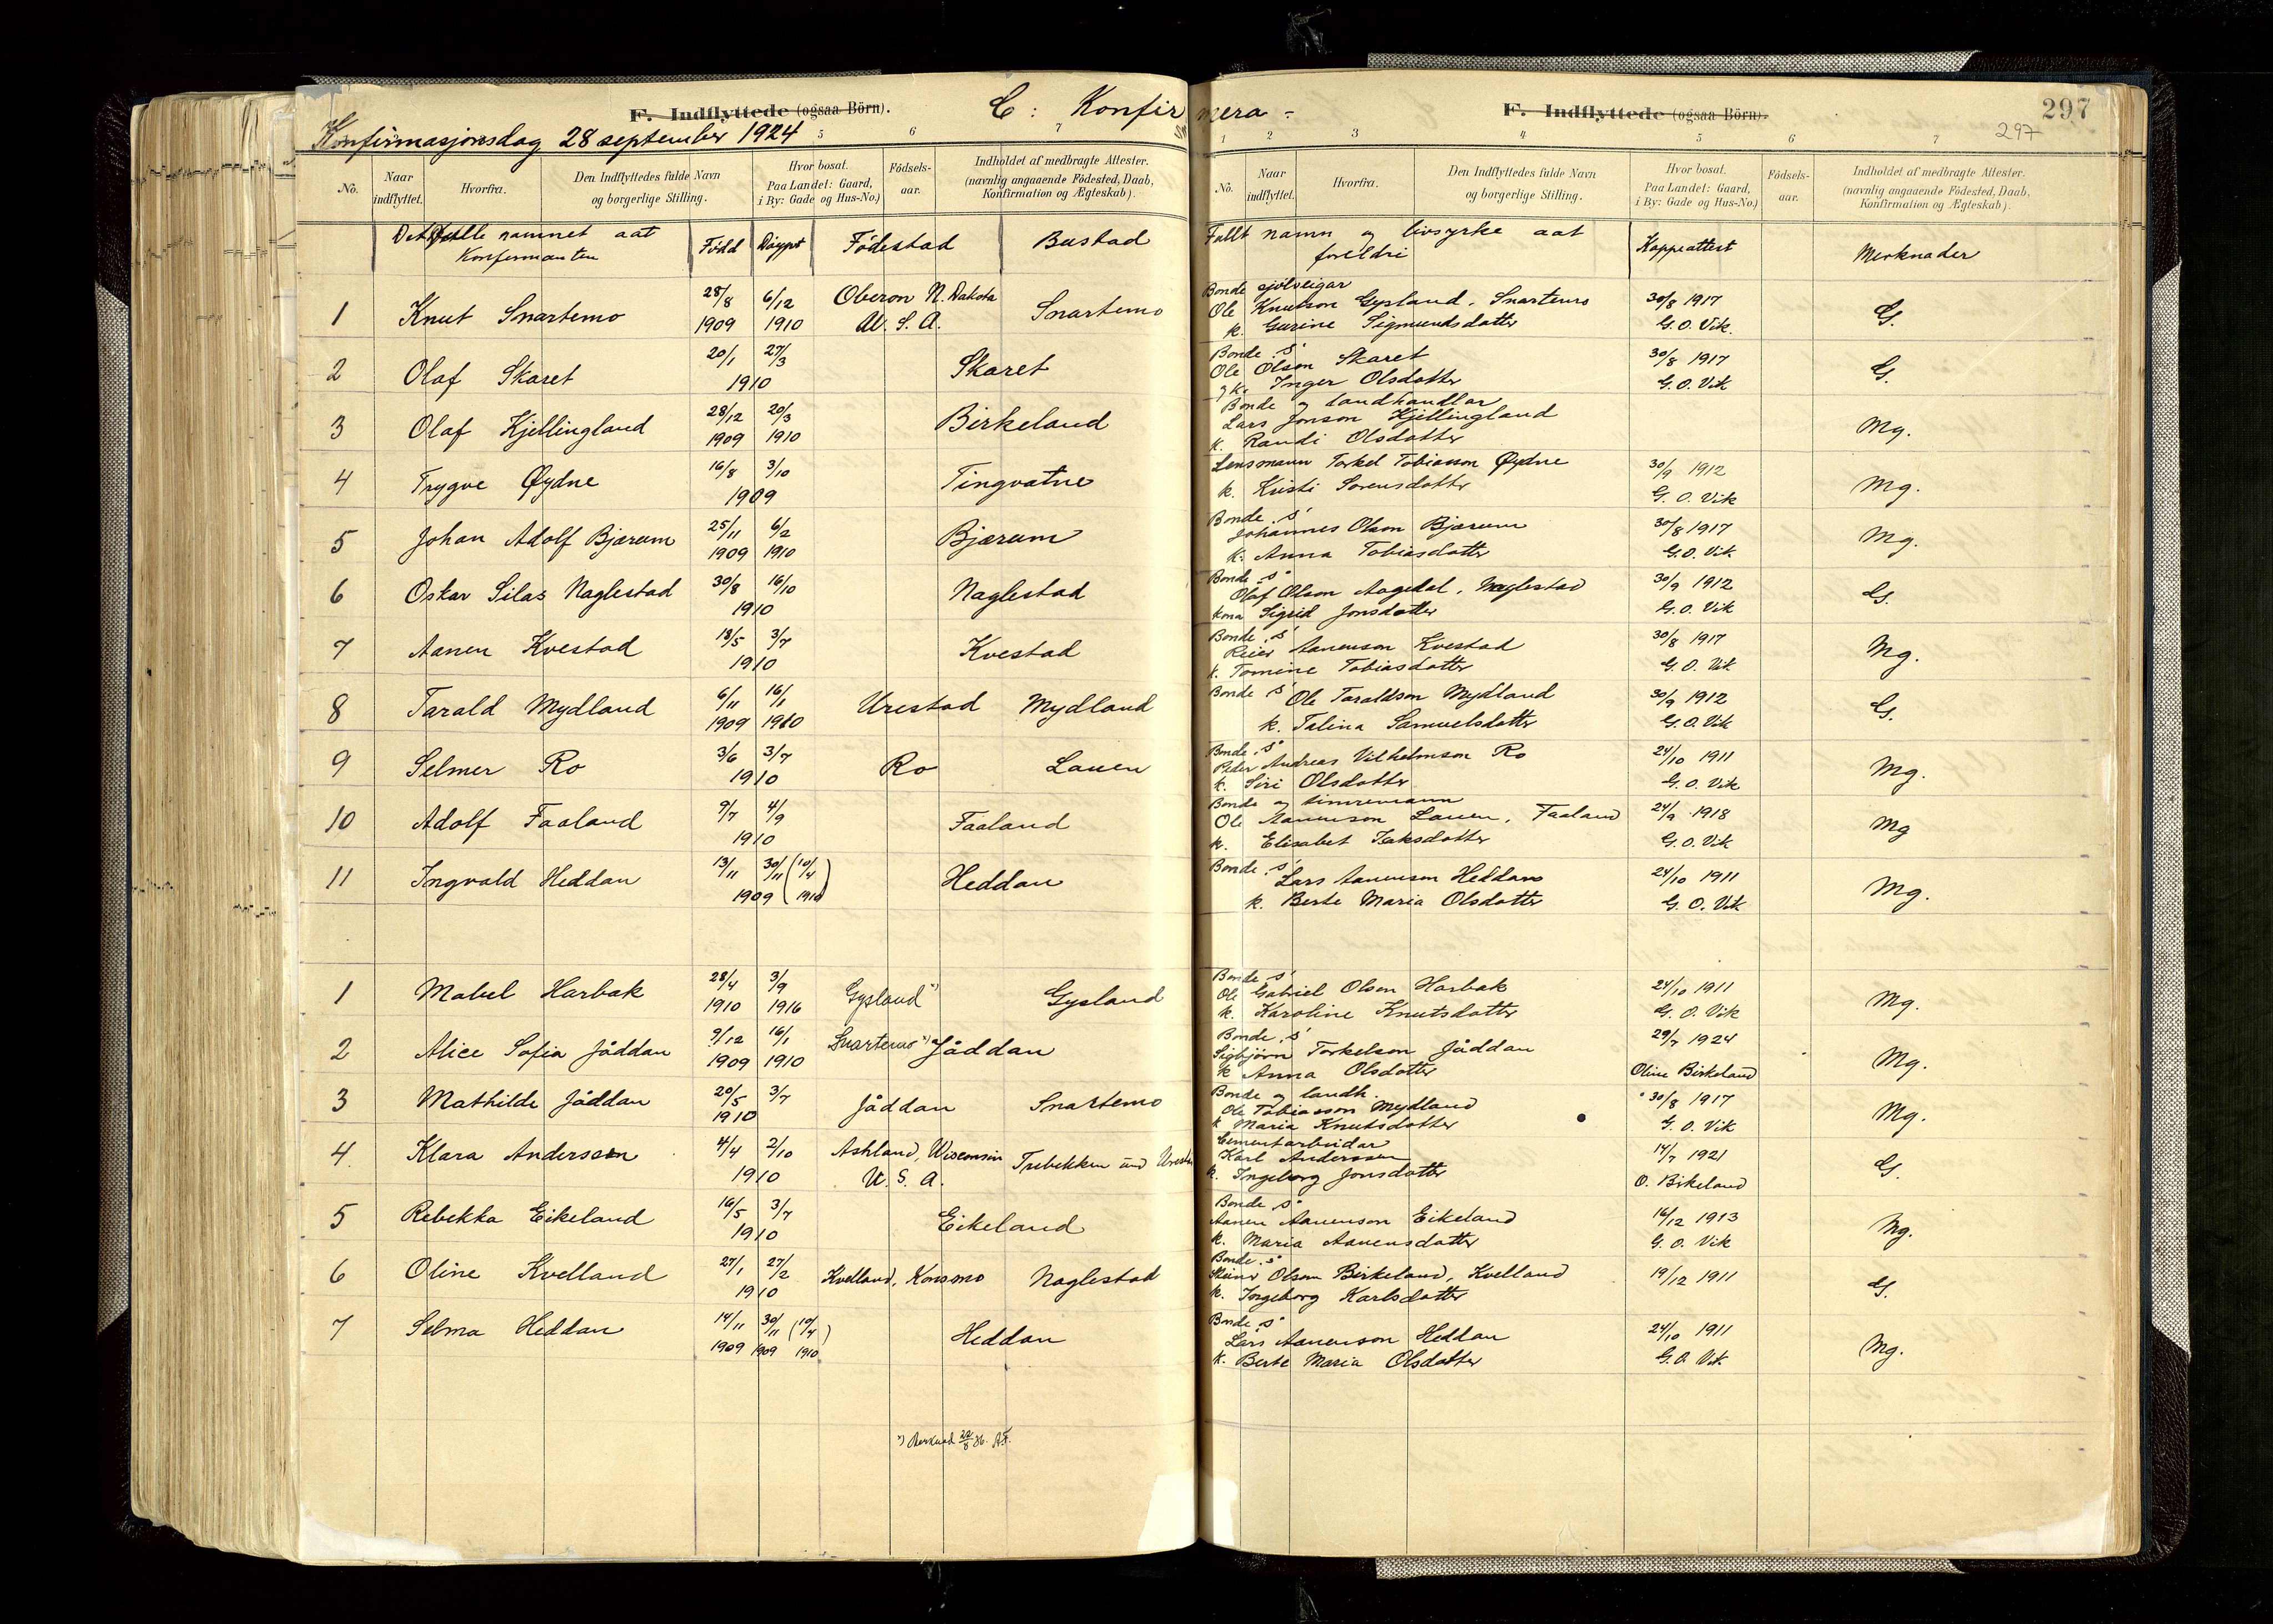 F. Indflyttede (ogsaa Börn).
C: Konfirmera -
F. Indflyttede (ogsaa Börn).
297
297
Konfirmasjonsdag 28 september 1924
5 6 7
1 2 3 4 5 6 7
No. Naar indflyttet. Hvorfra. Den Indflyttedes fulde Navn og borgerlige Stilling. Hvor bosat. Paa Landet: Gaard, i By: Gade og Hus-No.) Födsels-aar. Indholdet af medbragte Attester. (navnlig angaaende Födested, Daab, Konfirmation og Ægteskab).
No. Naar indflyttet. Hvorfra. Den Indflyttedes fulde Navn og borgerlige Stilling. Hvor bosat. Paa Landet: Gaard, i By: Gade og Hus-No.) Födsels-aar. Indholdet af medbragte Attester. (navnlig angaaende Födested, Daab, Konfirmation og Ægteskab).
Det fulle namnet aat Konfirmanten Fødd Døypt Fødestad Bustad Fullt namn og livsyrke aat foreldri Koppeattest Merknader
1 Knut Snartemo 28/8 1909 6/12 1910 Oberon N. Dakota U. S. A. Snartemo Bonde sjølveigar Ole Knutson Gysland, Snartemo k. Gurine Sigmundsdotter 30/8 1917 G. O. Vik. G.
2 Olaf Skaret 20/1 27/3 1910 Skaret Bonde. S. Ole Olson Skaret og k. Inger Olsdotter 30/8 1917 G. O. Vik G.
3 Olaf Kjellingland 28/12 1909 20/3 1910 Birkeland Bonde og landhandlar Lars Jonson Kjellingland k. Randi Olsdotter Mg.
4 Trygve Øydne 16/8 3/10 1909 Tingvatne Lensmann Torkel Tobiasson Øydne k. Kristi Sorensdotter 30/9 1912 G. O. Vik Mg.
5 Johan Adolf Bjærum 25/11 1909 6/2 1910 Bjærum Bonde. S. Johannes Olson Bjærum k. Anna Tobiasdotter 30/8 1917 G. O. Vik Mg.
6 Oskar Silas Naglestad 30/8 16/10 1910 Naglestad Bonde. S. Olaf Olson Aagedal, Naglestad kona Sigrid Jonsdotter 30/9 1912 G. O. Vik G.
7 Aanen Kvestad 18/5 3/7 1910 Kvestad Bonde. S. Reier Aanenson Kvestad k. Tomine Tobiasdotter 30/8 1917 G. O. Vik Mg.
8 Tarald Mydland 6/11 1909 16/1 1910 Urestad Mydland Bonde S. Ole Taraldson Mydland k. Talina Samuelsdotter 30/9 1912 G. O. Vik G.
9 Selmer Ro 3/6 3/7 1910 Ro Lauen Bonde. S. Peder Andreas Vilhelmson Ro k. Siri Olsdotter 24/10 1911 G. O. Vik Mg.
10 Adolf Faaland 9/7 4/9 1910 Faaland Bonde og timremann Ole Aanenson Lauen, Faaland k. Elisabet Isaksdotter 24/9 1918 G. O. Vik Mg
11 Ingvald Heddan 13/11 30/11 1909 (10/4 1910) Heddan Bonde. S. Lars Aanenson Heddan k. Berte Maria Olsdotter 24/10 1911 G. O. Vik Mg.
1 Mabel Harbak 28/4 1910 3/9 1916 Gysland *) Gysland Bonde S. Ole Gabriel Olson Harbak k. Karoline Knutsdotter 24/10 1911 G. O. Vik Mg.
2 Alice Sofia Jåddan 9/12 1909 16/1 1910 Snartemo *) Jåddan Bonde. S. Sigbjørn Torkelson Jåddan k Anna Olsdotter 29/7 1924 Oline Birkeland Mg.
3 Mathilde Jåddan 20/5 3/7 1910 Jåddan Snartemo Bonde og landh. Ole Tobiasson Mydland k Maria Knutsdotter 30/8 1917 G. O. Vik Mg.
4 Klara Anderssen 4/4 2/10 1910 Ashland, Wisconsin U. S. A. Trebekken und Urestad Cementarbeidar Karl Anderssen k. Ingeborg Jonsdotter 14/7 1921 O. Birkeland G.
5 Rebekka Eikeland 16/5 3/7 1910 Eikeland Bonde S. Aanen Aanenson Eikeland k. Maria Aanensdotter 16/12 1913 G. O. Vik Mg.
6 Oline Kvelland 27/1 27/2 1910 Kvelland, Konsmo Naglestad Bonde. S. Olson Birkeland, Kvelland k. Ingeborg Karlsdotter 19/12 1911 G.
7 Selma Heddan 14/11 1909 30/11 1909 (10/4 1910) Heddan Bonde S. Lars Aanenson Heddan k. Berte Maria Olsdotter 24/10 1911 G. O. Vik Mg.